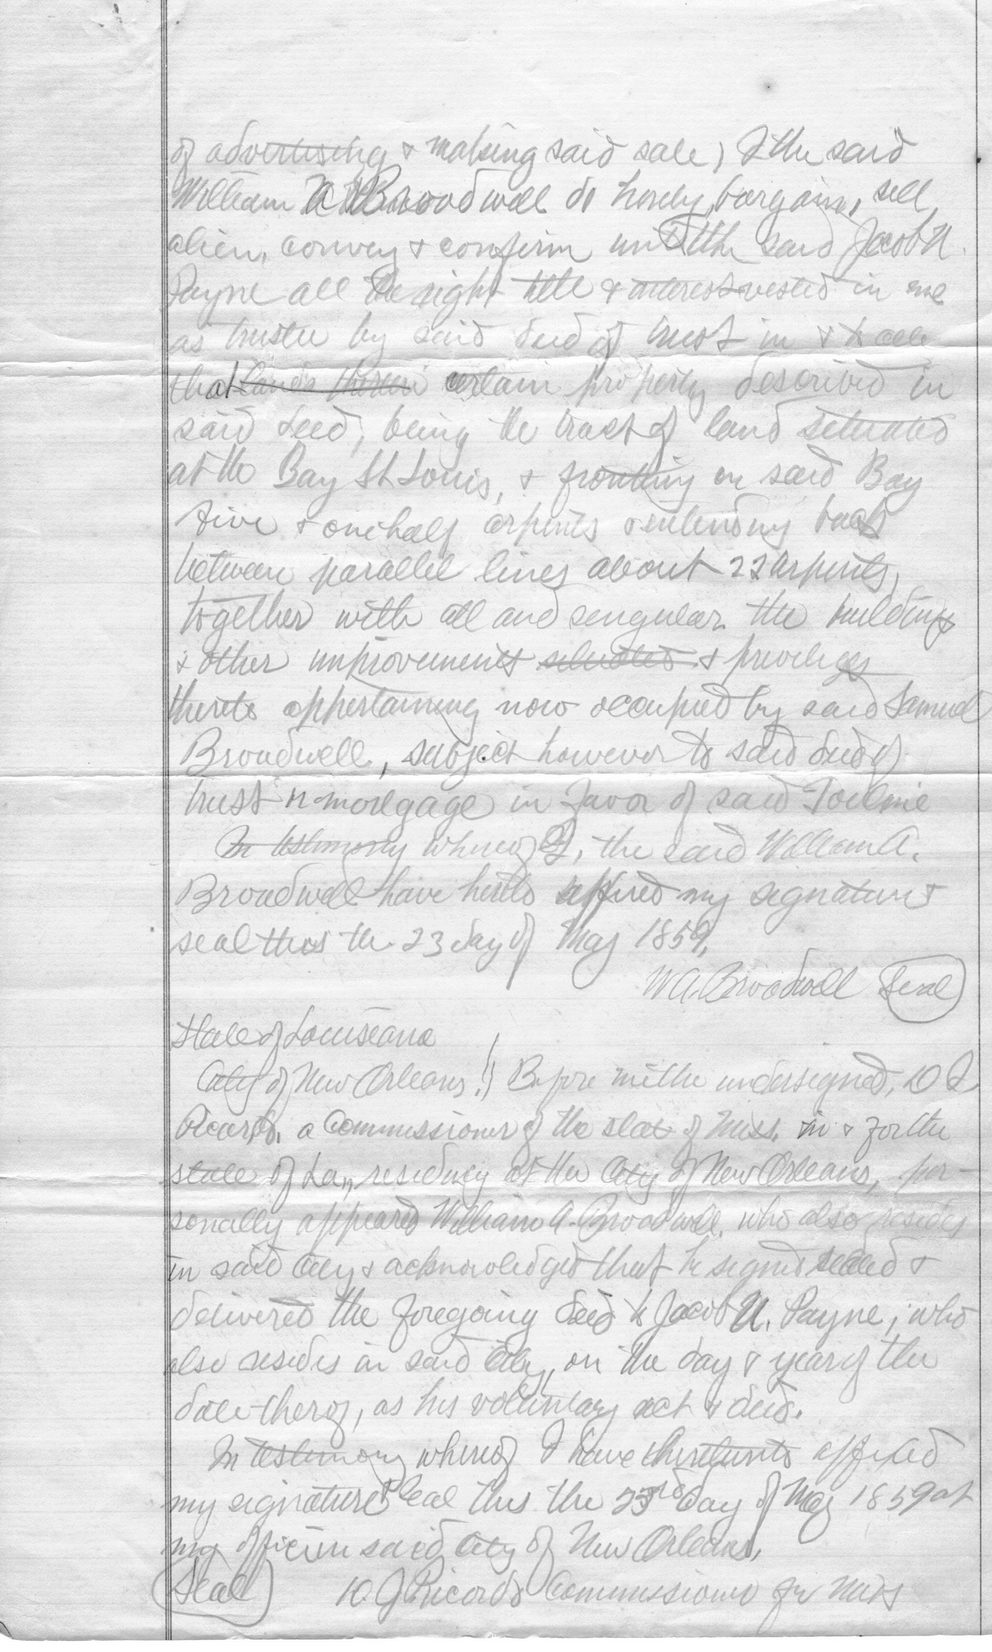 of advertising & making said sale) I the said
William A Broadwell do hereby bargain, sell,
alien, convey & confirm unto the said Jacob U.
Payne all the right title & interest vested in me
as trustee by said deed of trust in & to all
that certain property described in
said deed, being the tract of land situated
at the Bay St Louis, & fronting on said Bay
five & one half arpents & extending back
between parallel lines about 22 arpents,
together with all and singular the buildings
& other improvements situated & privileges
thereto appertaining now occupied by said Samuel
Broadwell, subject however to said deed of
trust or mortgage in favor of said Toulmie
In testimony whereof I, the said William A.
Broadwell have hereto affixed my signature &
seal this the 23 day of May 1859.
W A. Broadwell Seal
State of Louisiana
City of New Orleans. Before me the undersigned,
a Commissioner of the state of Miss. in & for the
state of La, residing at the City of New Orleans, per-
sonally appeared William A. Broadwell, who also resides
in said City & acknowledged that he signed sealed &
delivered the foregoing deed to Jacob U. Payne, who
also resides in said City, on the day & year of the
date thereof, as his voluntary act & deed.
In testimony whereof I have hereunto affixed
my signature & seal this the 23rd day of May 1859 at
my office in said City of New Orleans,
Seal Ricords Commissioner for Miss